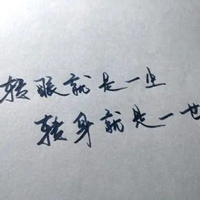 转眼就是一生
转身就是一世